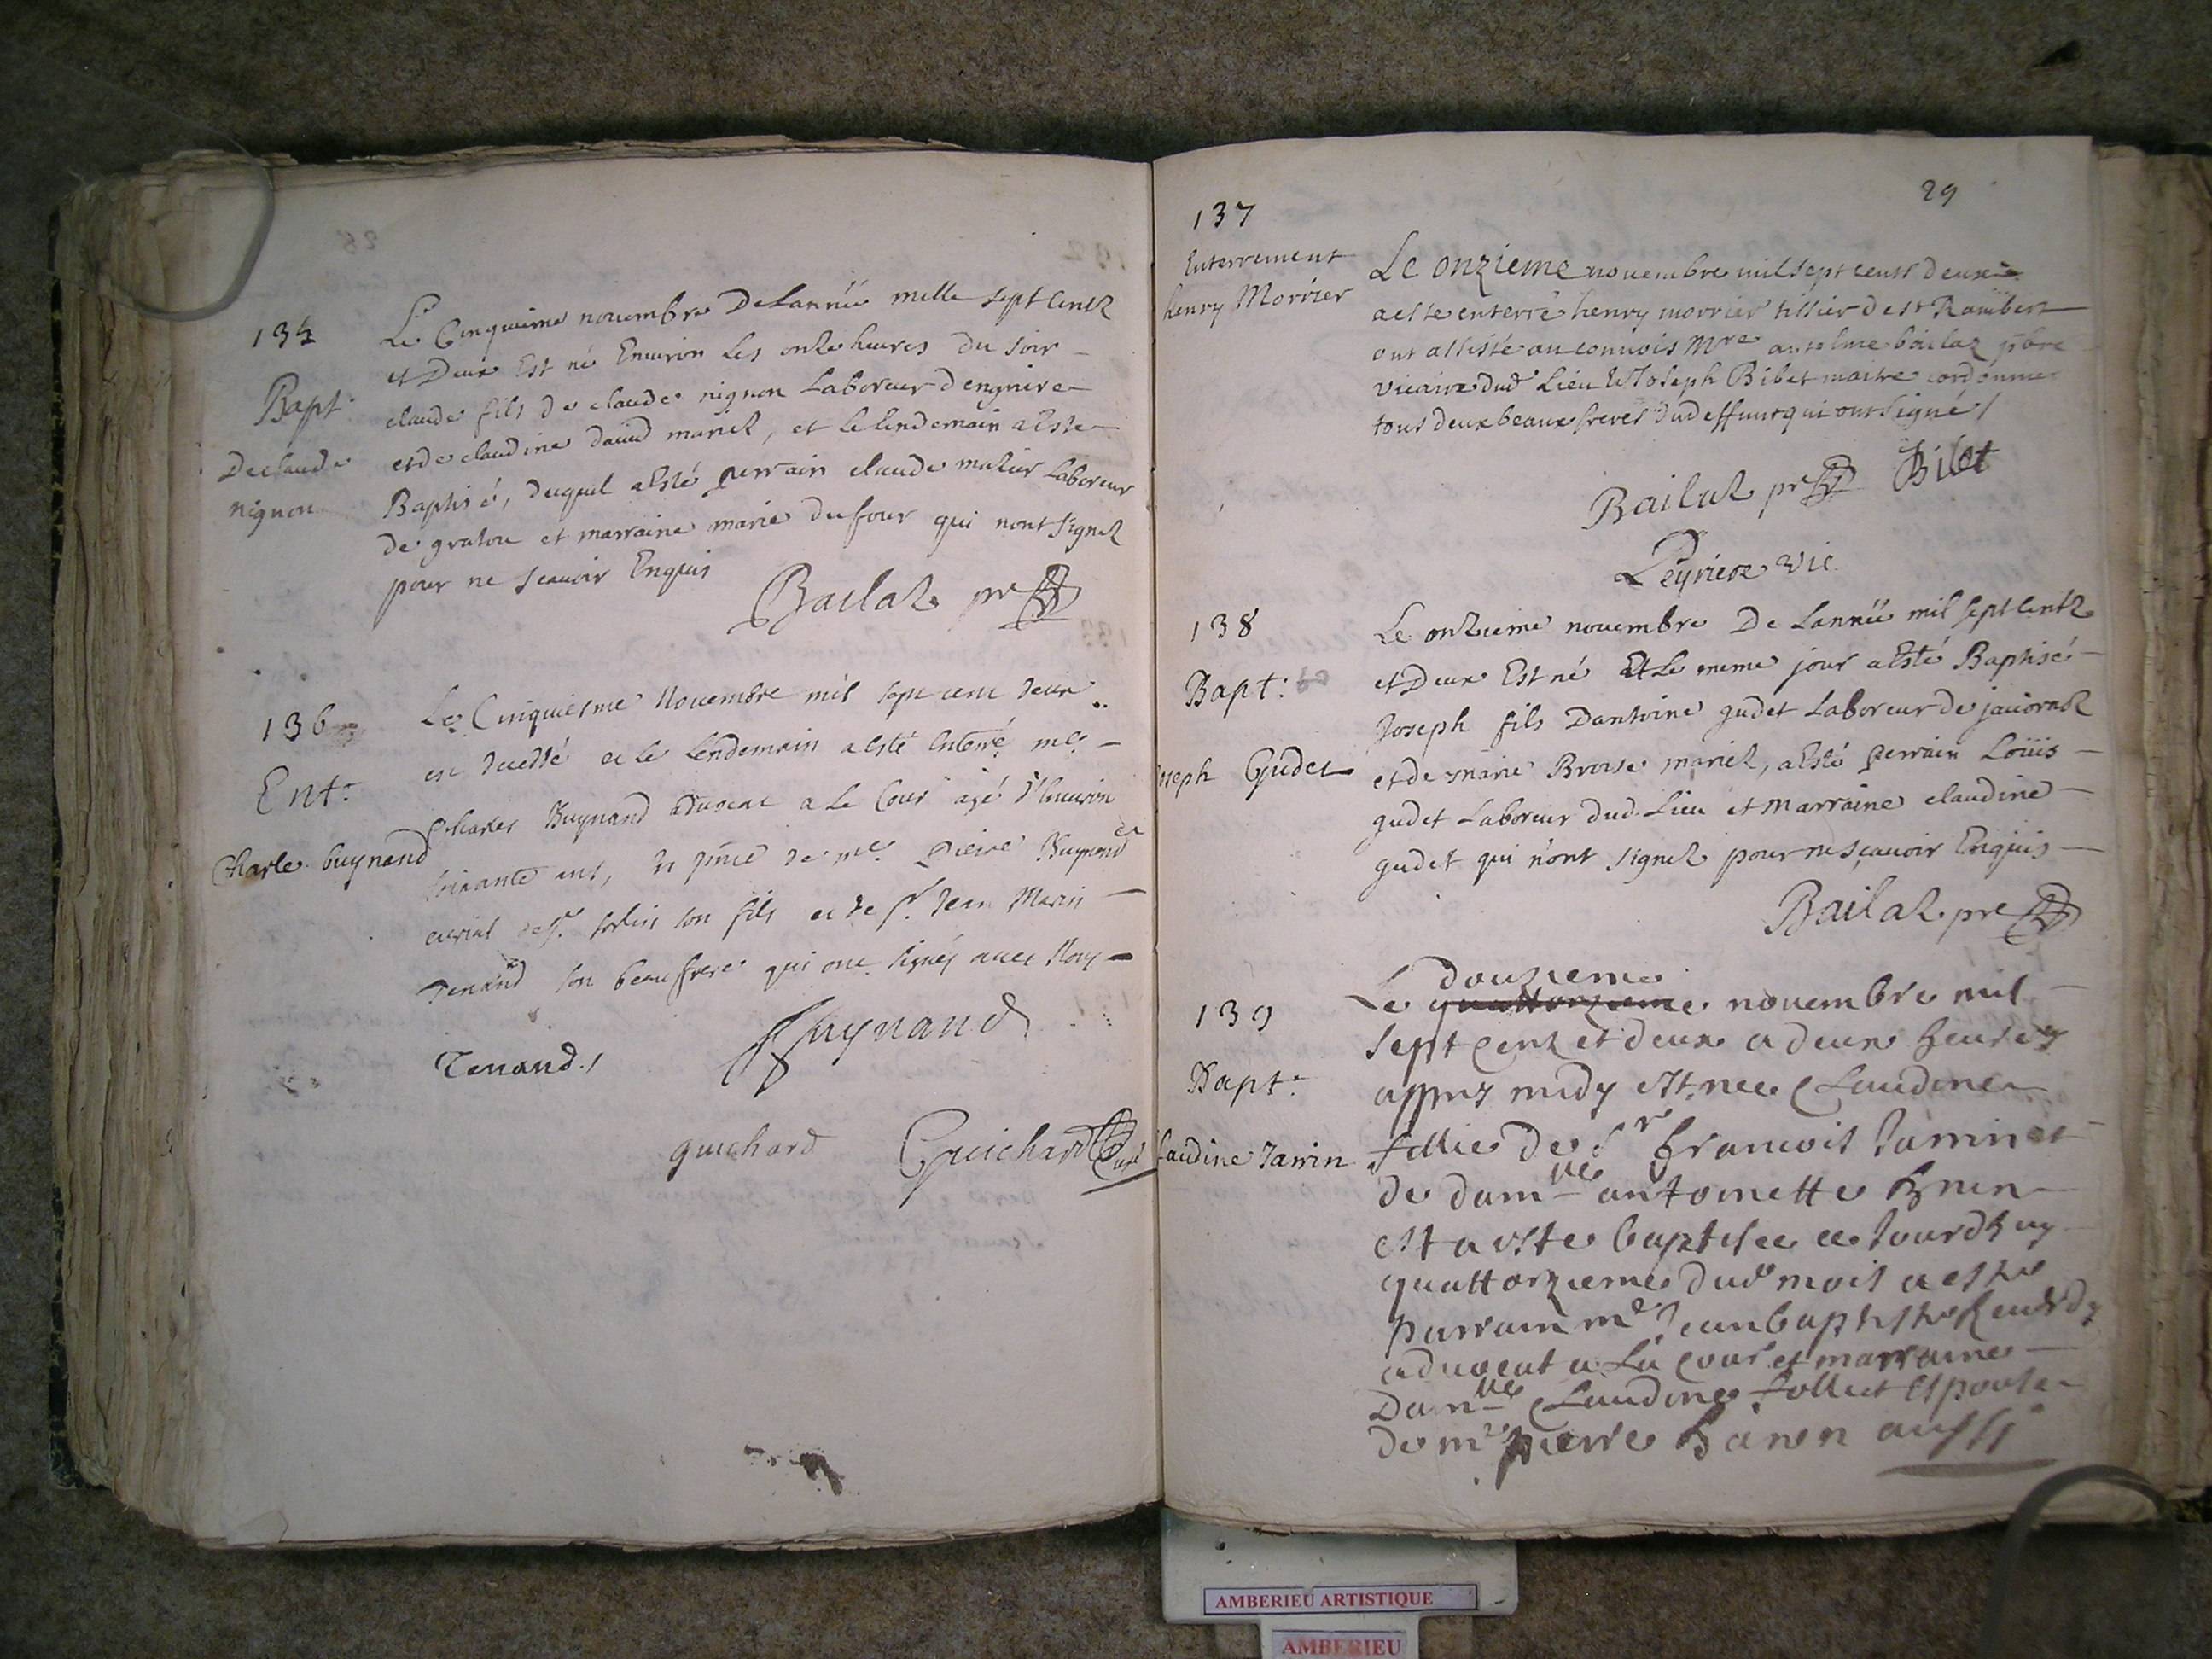 134
Bapt
De claude
nignon
Le Cinquieme nouembre De Lannée mille sept Centz
et Deux Est né Enuiron Les onze heures du soir
claude fils de claude nignon Laboreur
et de claudine dauid mariez, et le lendemain a Esté
Baptisé, duquel a Esté perrain claude Laboreur
de et marraine marie dufour qui nont signez
pour ne scauoir Enquis
Bailaz pre
136
Ent.
Charle buynand
Le Cinquiesme Novembre mil sept cent deux
est decedé et le Lendemain a esté Enterré me
Charles Buynand aduocat a la Cour agé d'Enuiron
soixante ans, en pnce de me. Pierre Buynand
son fils et de sr. Jean Marin
Tenand son beau frere qui ont signéz auec Nous
Buynand
Tenand
guichard
Guichard Curé
29
137
Enterrement
henry Morrier
Le onzieme nouembre mil sept cents deux
a este enterré henry morrier tissier de st Rambert
ont assisté au conuois Mre anselme bailaz pbre
vicaire dud Lieu Et Joseph Bibet maitre cordonnie
tous deux beaux freres dud effunt qui ont signé /
Bailaz pre Bibet
Leyrieux vic
138
Bapt:
Joseph Gudet
Le onzieme nouembre De Lannée mil sept Centz
et Deux Est né Et Le meme jour a Esté Baptisé
Joseph fils Dantoine gudet Laboreur de jauornoz
et de marie Broise mariez, a Esté perrain Loüis
gudet Laboreur dud. Lieu et Marraine claudine
gudet qui n'ont signez pour ne sçauoir Enquis
Bailaz. pre
139
Bapt.
Claudine Jarrin
douzieme
Le quattorzieme nouembre mil
sept Cenz et deux a deux heures
appres midy est nee Claudine
fillie de Sr francois Jarrin et
de damlle antoinette
et a este baptisee ce Jourdhuy
quattorzieme dud mois a este
parrain me Jean baptiste
aduocat a La cour et marraine
Damlle Claudine follict Espouse
de me pierre aussi
AMBERIEU ARTISTIQUE
AMBERIEU